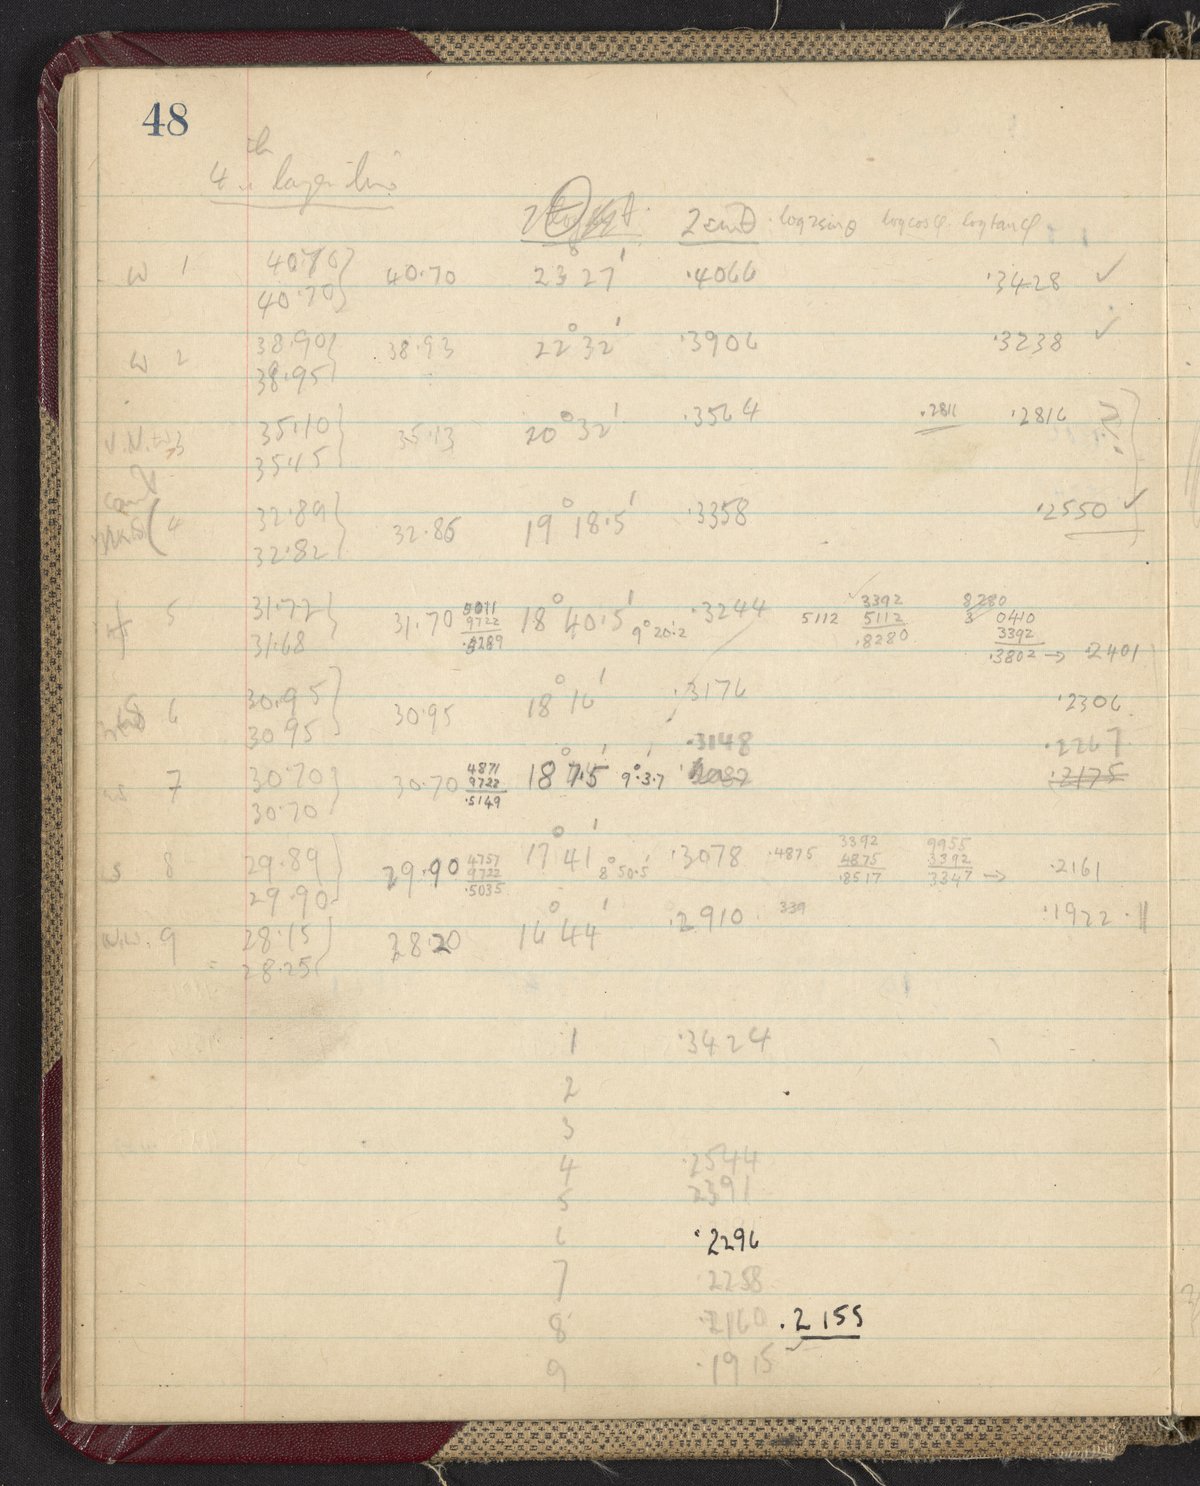 48
4th layer line
2 sin θ log 2 sin θ log cos φ log tan φ
w 1 40.70 40.70 23° 27' .4066 .3428 ✓
40.70
w 2 38.90 38.93 22° 32' .3906 .3238 ✓
38.95
3 35.10 35.13 20° 32' .3564 .2811 .2816
35.15
4 32.89 32.86 19° 18.5' .3358 .2550 ✓
32.82
5 31.72 31.70 18° 40.5' .3244
31.68
5011
9722
.5289
9° 20.2
5112
3392
5112
.8280
8280
3 0410
3392
.3802 → .2401
6 30.95 30.95 18° 16' .3176 .2306
30.95
.3148 .2267
7 30.70 30.70 18° 7.5' 9° 3.7' .2175
30.70
4871
9722
.5149
s 8 29.89 29.90 17° 41' .3078 .4875 .2161
29.90
4757
9722
.5035
8° 50.5'
3392
4875
.8517
9955
3392
3347 →
w.w. 9 28.15 28.20 16° 44' .2910 339 .1922
28.25
1 .3424
2
3
4 .2544
5 2391
6 .2296
7 .2258
8 .2160 .2155
9 .1915